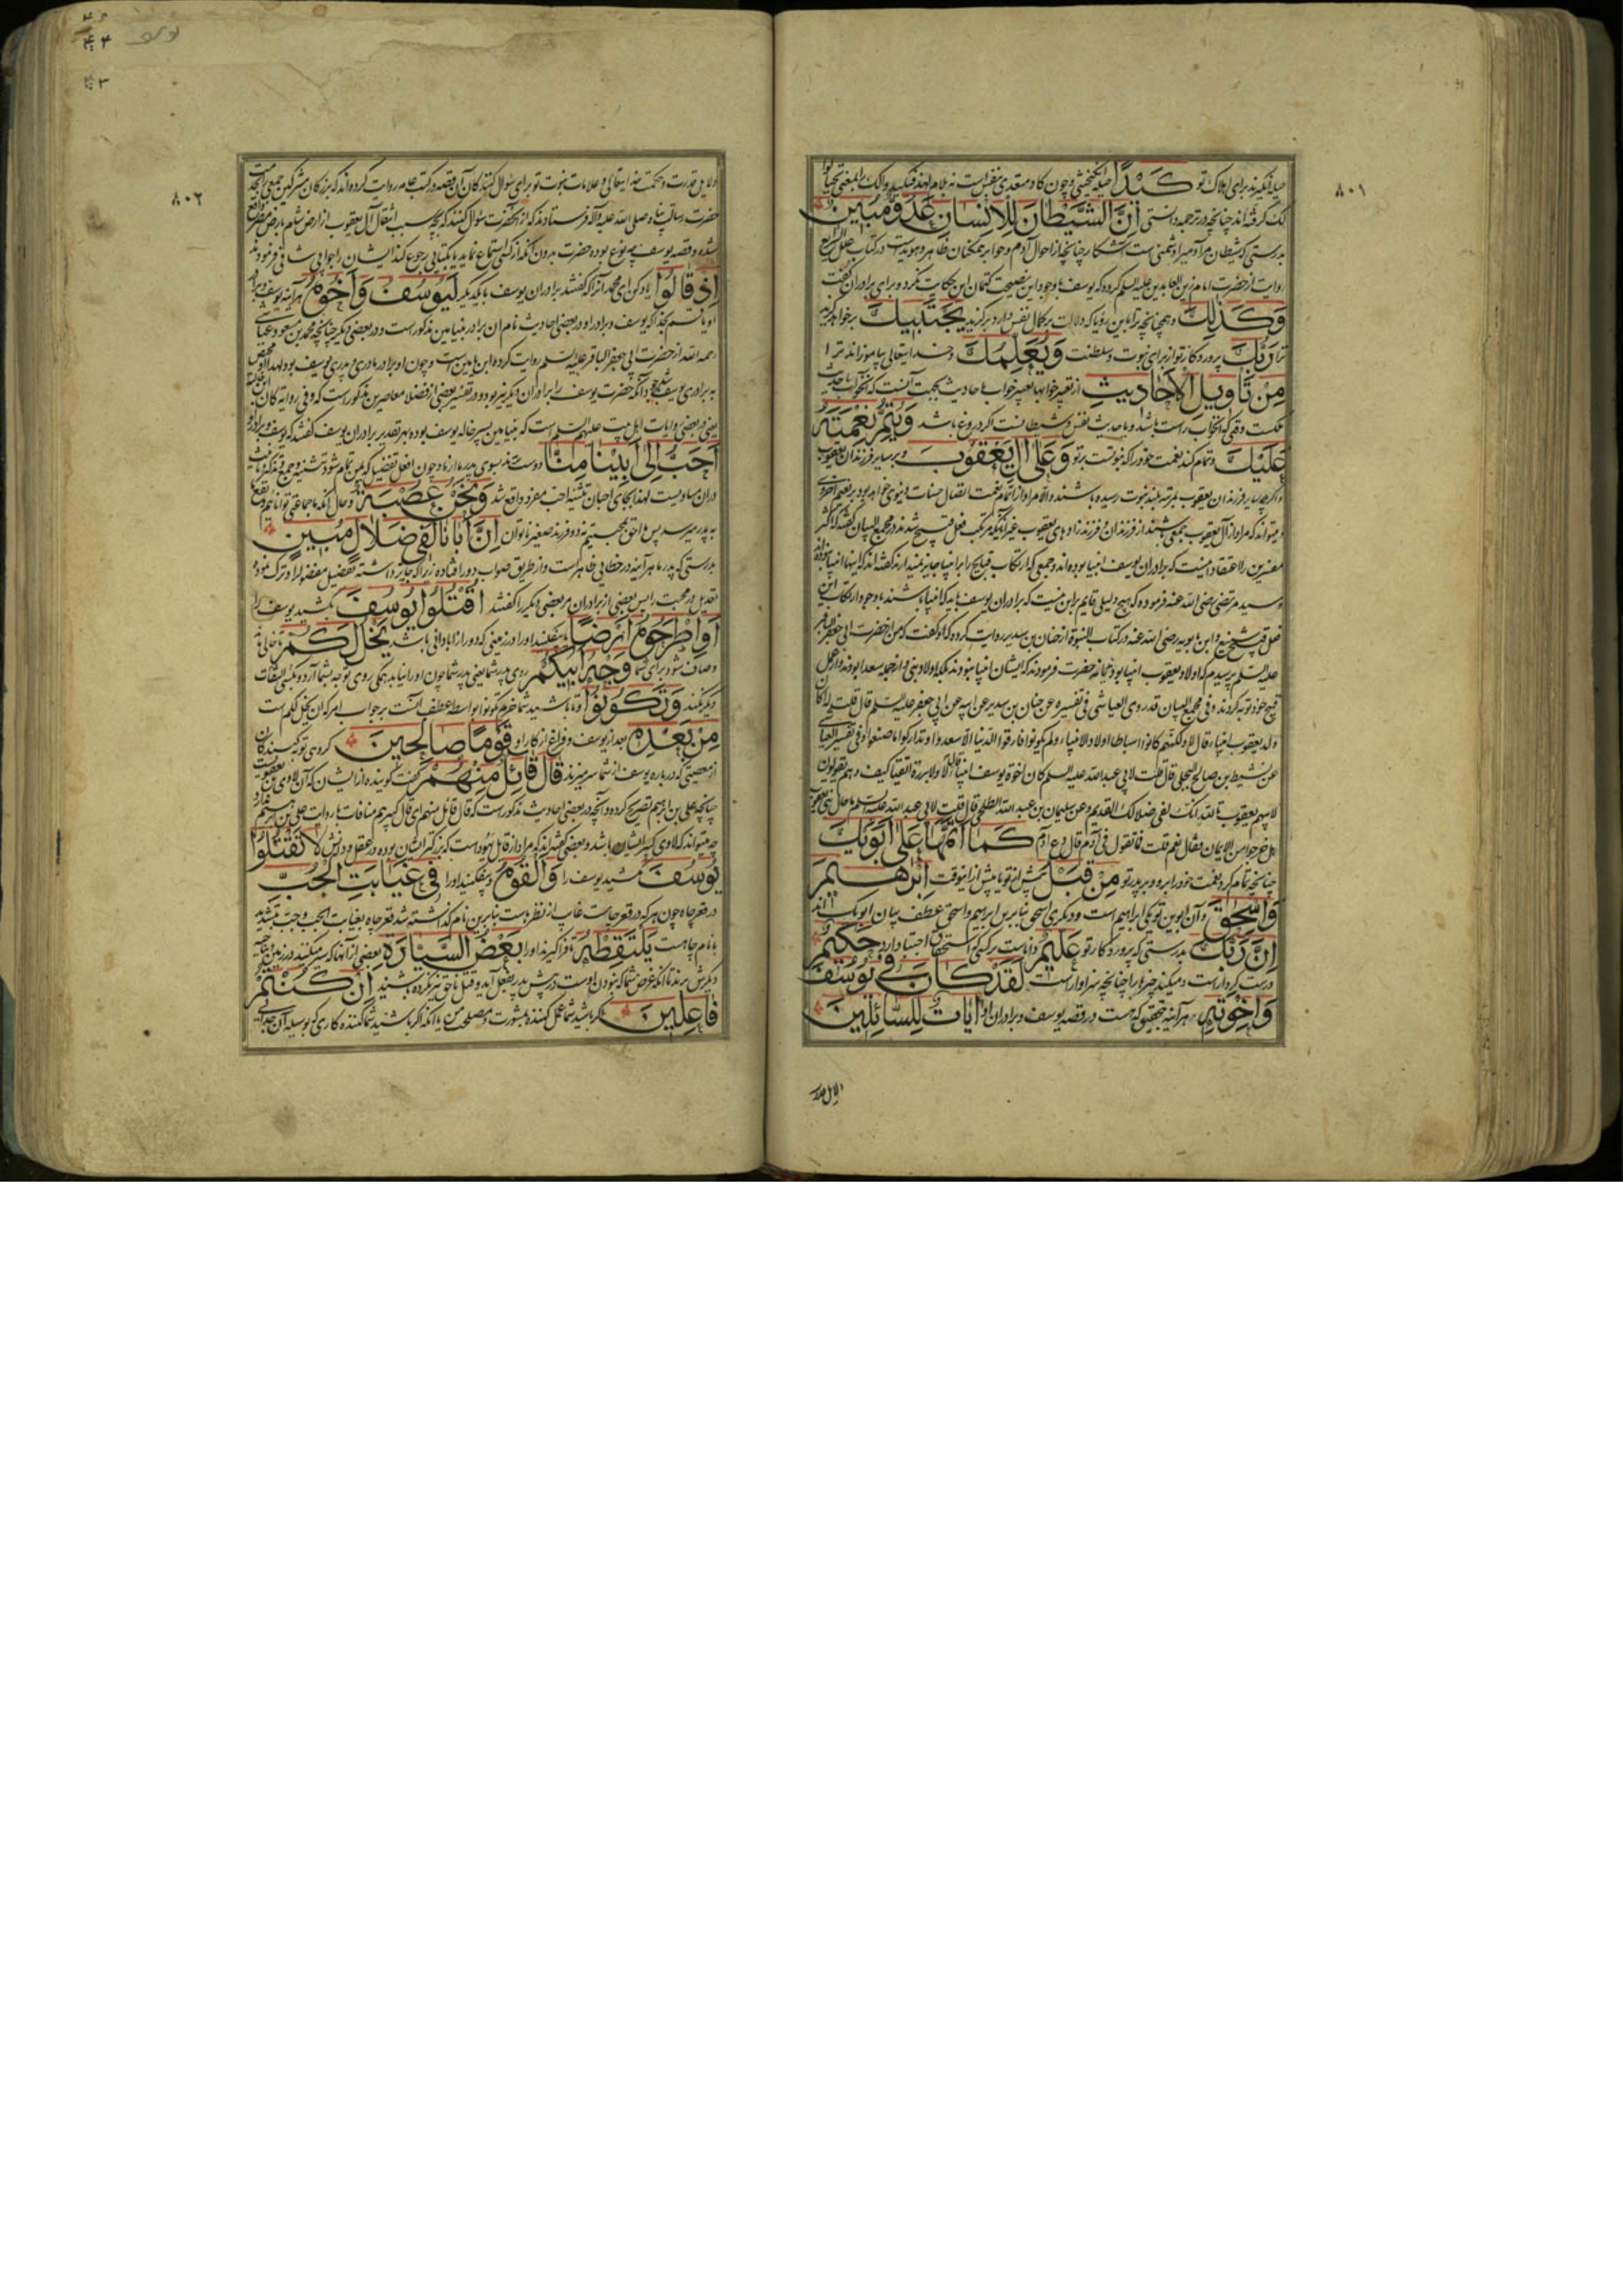 ۸۰۱
حیله انگیزند برای اهلاک تو كَيْدًا حیله انگیختنی و چون کاد متعدی بنفس است
لک کرفته‌اند چنانچه در ترجمه دانستی إِنَّ الشَّيْطَانَ لِلْإِنسَانِ عَدُوٌّ مُبِينٌ
بدرستی که شیطان مر آدمیرا دشمنی است آشکار چنانچه از احوال آدم و حوا بر همکنان ظاهر و هویداست در کتاب علل الشرایع
روایت از حضرت امام زین العابدین علیه السلم کرده که یوسف با وجود این نصیحت کتمان این حکایت نکرد و برای برادران گفت
وَكَذَلِكَ وهمچنانچه ترا باین رؤیا که دلالت بر کمال نفس دارد برکزید يَجْتَبِيكَ برخواهد کزید
ترا رَبُّكَ پروردکار تو از برای نبوت و سلطنت وَيُعَلِّمُكَ و خدایتعالی بیاموزاند ترا
مِنْ تَأْوِيلِ الْأَحَادِيثِ از تعبیر خوابها تعبیر خواب باحادیث بجهت آنست که آنخواب یا حدیث
ملکست وقتی که آنخواب راست باشد و یا حدیث نفس و شیطانست اکر دروغ باشد وَيُتِمُّ نِعْمَتَهُ
عَلَيْكَ و تمام کند نعمت خود را که نبوتست بر تو وَعَلَى آلِ يَعْقُوبَ و بر سایر فرزندان یعقوب
واکرچه سایر فرزندان یعقوب بمرتبه بلند نبوت رسیده باشند والا مراد از اتمام نعمت اتصال حسنات دنیوی خواهد بود بنعیم اخروی
و میتواند که مراد از آل یعقوب جمعی باشند از فرزندان و فرزندزاده‌های یعقوب غیر آنانکه مرتکب فعل قبیح شدند در مجمع البیان گفته که اکثر
مفسرین را اعتقاد اینست که برادران یوسف انبیا بوده‌اند و جمعی که ارتکاب قبایح را بر انبیا جایز نمیدارند گفته‌اند که اینها انبیا نبوده‌اند
وسید مرتضی رضی الله عنه فرموده که هیچ دلیلی قایم بر این نیست که برادران یوسف که انبیا باشند با وجود ارتکاب این
فعل قبیح شنیع و ابن بابویه رضی الله عنه در کتاب النبوة از حنان بن سدیر روایت کرده که او گفت که من از حضرت ابی جعفر الباقر
علیه السلم پرسیدم که اولاد یعقوب انبیا بودند یا نه حضرت فرمودند که ایشان انبیا نبودند بلکه اولاد نبی
قبیح خود توبه کردند و فی مجمع البیان قد روی العیاشی فی تفسیره عن حنان بن سدیر عن ابیه عن ابی جعفر علیه السلم قال قلت له أکان
ولد یعقوب انبیاء قال لا ولکنهم کانوا اسباطا اولاد الانبیاء ولم یکونوا فارقوا الدنیا الا سعدوا وتذکروا ما صنعوا وفی تفسیر العیاشی
عن نشیط بن صالح البجلی قال قلت لابی عبدالله علیه السلم کان اخوة یوسف انبیا قال لا ولا بررة اتقیا کیف وهم یقولون
لابیهم یعقوب تالله انک لفی ضلالک القدیم وعن سلیمان بن عبدالله الطلحی قال قلت لابی عبدالله علیه السلم ما حال بنی یعقوب
هل خرجوا من الایمان فقال نعم قلت فما تقول فی آدم قال دع آدم كَمَا أَتَمَّهَا عَلَى أَبَوَيْكَ
چنانچه تمام کرد نعمت خود را بر دو پدر تو مِنْ قَبْلُ پیش از تو یا پیش از اینوقت إِبْرَاهِيمَ
وَإِسْحَقَ و آن ابوین تو یکی ابراهیم است و دیگری اسحق بنابرین ابراهیم و اسحق عطف بیان ابویک اند
إِنَّ رَبَّكَ بدرستی که پروردکار تو عَلِيمٌ داناست بر کسی که استحقاق اجتبا دارد حَكِيمٌ
درست کردار است و میکند چیزها را چنانچه سزاوار است لَقَدْ كَانَ فِي يُوسُفَ
وَإِخْوَتِهِ هر آینه بتحقیق که هست در قصه یوسف و برادران او آيَاتٌ لِلسَّائِلِينَ
۸۰۲
دلایل قدرت و حکمت خدایتعالی و علامات نبوت تو برای سؤال کنندکان آن قصه و در کتب عامه روایت کرده‌اند که بزرکان مشرکین
حضرت رسالت پناه صلی الله علیه وآله فرستادند که از آنحضرت سؤال کنند که بچه سبب انتقال آل یعقوب از ارض شام بارض مصر واقع
شده و قصه یوسف بچه نوع بوده حضرت بدون آنکه از کسی استماع نماید یا بکتابی رجوع کند ایشان را جوابی شافی فرمودند
إِذْ قَالُوا یاد کن ای محمد آنرا که گفتند برادران یوسف با یکدیگر لَيُوسُفُ وَأَخُوهُ هر آینه یوسف و برادر
رحمه الله از حضرت ابی جعفر الباقر علیه السلم روایت کرده ابن یامین است و چون او برادر مادری و پدری یوسف بود لهذا او مخصوص
به برادری یوسف شد و آنکه حضرت یوسف را برادران دیگر نیز بود و در تفسیر بعضی از فضلاء معاصرین مذکور است که وفی روایه کان
یعنی در بعضی روایات اهل بیت علیهم السلم است که بنیامین پسر خاله یوسف بوده بهر تقدیر برادران یوسف گفتند که یوسف و برادر او
أَحَبُّ إِلَى أَبِينَا مِنَّا دوست‌ترند بسوی پدر ما از ما و چون افعل تفضیل که بمن تمام شود تثنیه و جمع و تذکیر و تأنیث
در آن مساویست لهذا بجای احبان تثنیه احب مفرد واقع شد وَنَحْنُ عُصْبَةٌ و حال آنکه ما جماعتی تواناییم و نفع
به پدر میرسد پس ما احق بمحبتیم نه دو فرزند صغیر ناتوان إِنَّ أَبَانَا لَفِي ضَلَالٍ مُبِينٍ
بدرستی که پدر ما هر آینه در خطایی ظاهر است و از طریق صواب دور افتاده زیرا که جایز داشته تفضیل مفضول را و ترک نموده
تعدیل در محبت را پس بعضی از برادران مر بعضی دیگر را گفتند اقْتُلُوا يُوسُفَ بکشید یوسف را
أَوِ اطْرَحُوهُ أَرْضًا یا بیفکنید او را در زمینی که دور از آبادانی باشد يَخْلُ لَكُمْ تا خالی ماند
و صاف شود برای شما وَجْهُ أَبِيكُمْ روی پدر شما یعنی پدر شما چون او را نیابد بهمگی روی توجه بشما آرد و بکسی التفات
دیگر نکند وَتَكُونُوا و تا باشید شما جزم تکونوا بواسطه عطف آنست بر جواب امر که آن یخل لکم است
مِنْ بَعْدِهِ بعد از یوسف و فراغ از کار او قَوْمًا صَالِحِينَ گروهی توبه کنندکان
از معصیتی که در باره یوسف از شما سر میزند قَالَ قَائِلٌ مِنْهُمْ گفت گوینده از ایشان که آن لاوی بن یعقوبست
چنانچه علی بن ابرهیم تصریح کرده و آنچه در بعضی احادیث مذکور است که قال قائل منهم ای قال کبیرهم منافات با روایت علی بن ابرهیم ندارد
چه میتواند که لاوی کبیر ایشان باشد و بعضی گفته‌اند که مراد از قایل یهوداست که بزرکتر ایشان بوده در عقل و دانش لَا تَقْتُلُوا
يُوسُفَ مکشید یوسف را وَأَلْقُوهُ و بیفکنید او را فِي غَيَابَتِ الْجُبِّ
در قعر چاه چون هر که در قعر چاست غایب از نظرهاست بنابرین نام گذاشته شد قعر چاه بغیابت الجب
يَلْتَقِطْهُ تا فراگیرند او را بَعْضُ السَّيَّارَةِ بعضی از آنها که سیر میکنند در زمین
إِنْ كُنْتُمْ
فَاعِلِينَ اگر باشید شما عمل کننده بمشورت و مصلحت من یا آنکه اکر باشید شما کننده کاری که بوسیله آن جدایی